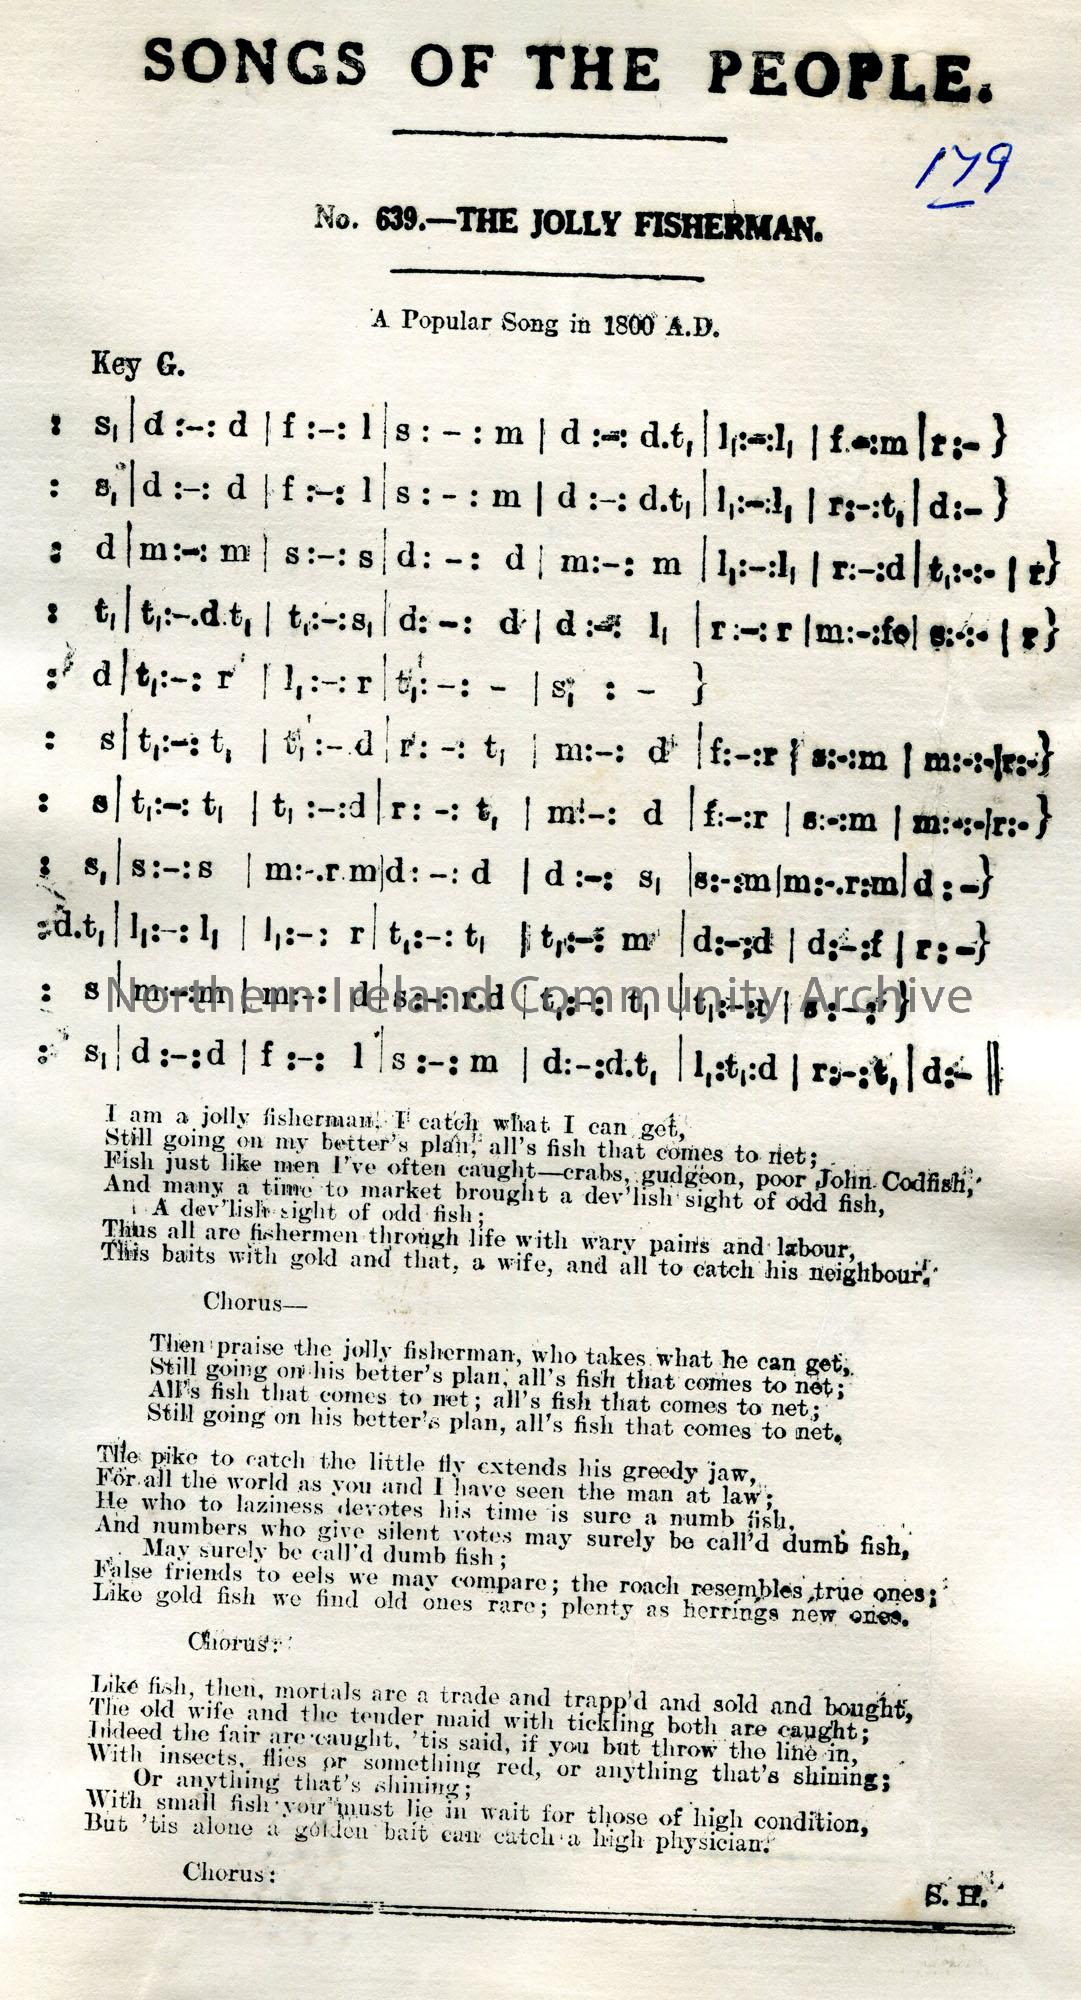 SONGS OF THE PEOPLE.
179
No. 639.—THE JOLLY FISHERMAN.
A Popular Song in 1800 A.D.
Key G.
: s, | d :–: d | f :–: l | s : – : m | d :–: d.t, | l,:–:l, | f :–:m | r :– }
: s, | d :–: d | f :–: l | s : – : m | d :–: d.t, | l,:–:l, | r:–:t, | d:– }
: d | m:–: m | s:–: s | d: –: d | m:–: m | l,:–:l, | r:–:d | t,:–:– | r }
: t, | t,:–.d.t, | t,:–:s, | d: –: d | d :–: l, | r :–: r | m:–:fe | s:–:– | r }
: d | t,:–: r | l, :–: r | t,: –: – | s, : – }
: s | t,:–: t, | t, :–.d | r: –: t, | m:–: d | f:–:r | s:–:m | m:–:– | r:– }
: s | t,:–: t, | t, :–:d | r: –: t, | m:–: d | f:–:r | s:–:m | m:–:– | r:– }
: s, | s :–: s | m:–.r.m | d: –: d | d :–: s, | s:–:m | m:–.r:m | d :– }
: d.t, | l,:–: l, | l,:–: r | t,:–: t, | t,:–: m | d:–:d | d:–:f | r :– }
: s | m:–:m | m:–: d | s:–: r.d | t,:–: t, | t,:–:r | s :–: }
: s, | d :–:d | f :–: l | s :–: m | d:–:d.t, | l,:t,:d | r:–:t, | d:– ||
Northern Ireland Community Archive
I am a jolly fisherman, I catch what I can get,
Still going on my better's plan, all's fish that comes to net;
Fish just like men I've often caught—crabs, gudgeon, poor John Codfish,
And many a time to market brought a dev'lish sight of odd fish,
A dev'lish sight of odd fish;
Thus all are fishermen through life with wary pains and labour,
This baits with gold and that, a wife, and all to catch his neighbour.
Chorus—
Then praise the jolly fisherman, who takes what he can get,
Still going on his better's plan, all's fish that comes to net;
All's fish that comes to net; all's fish that comes to net;
Still going on his better's plan, all's fish that comes to net.
The pike to catch the little fly extends his greedy jaw,
For all the world as you and I have seen the man at law;
He who to laziness devotes his time is sure a numb fish,
And numbers who give silent votes may surely be call'd dumb fish,
May surely be call'd dumb fish;
False friends to eels we may compare; the roach resembles true ones;
Like gold fish we find old ones rare; plenty as herrings new ones.
Chorus:
Like fish, then, mortals are a trade and trapp'd and sold and bought,
The old wife and the tender maid with tickling both are caught;
Indeed the fair are caught, 'tis said, if you but throw the line in,
With insects, flies or something red, or anything that's shining;
Or anything that's shining;
With small fish you must lie in wait for those of high condition,
But 'tis alone a golden bait can catch a high physician.
Chorus:
S. H.